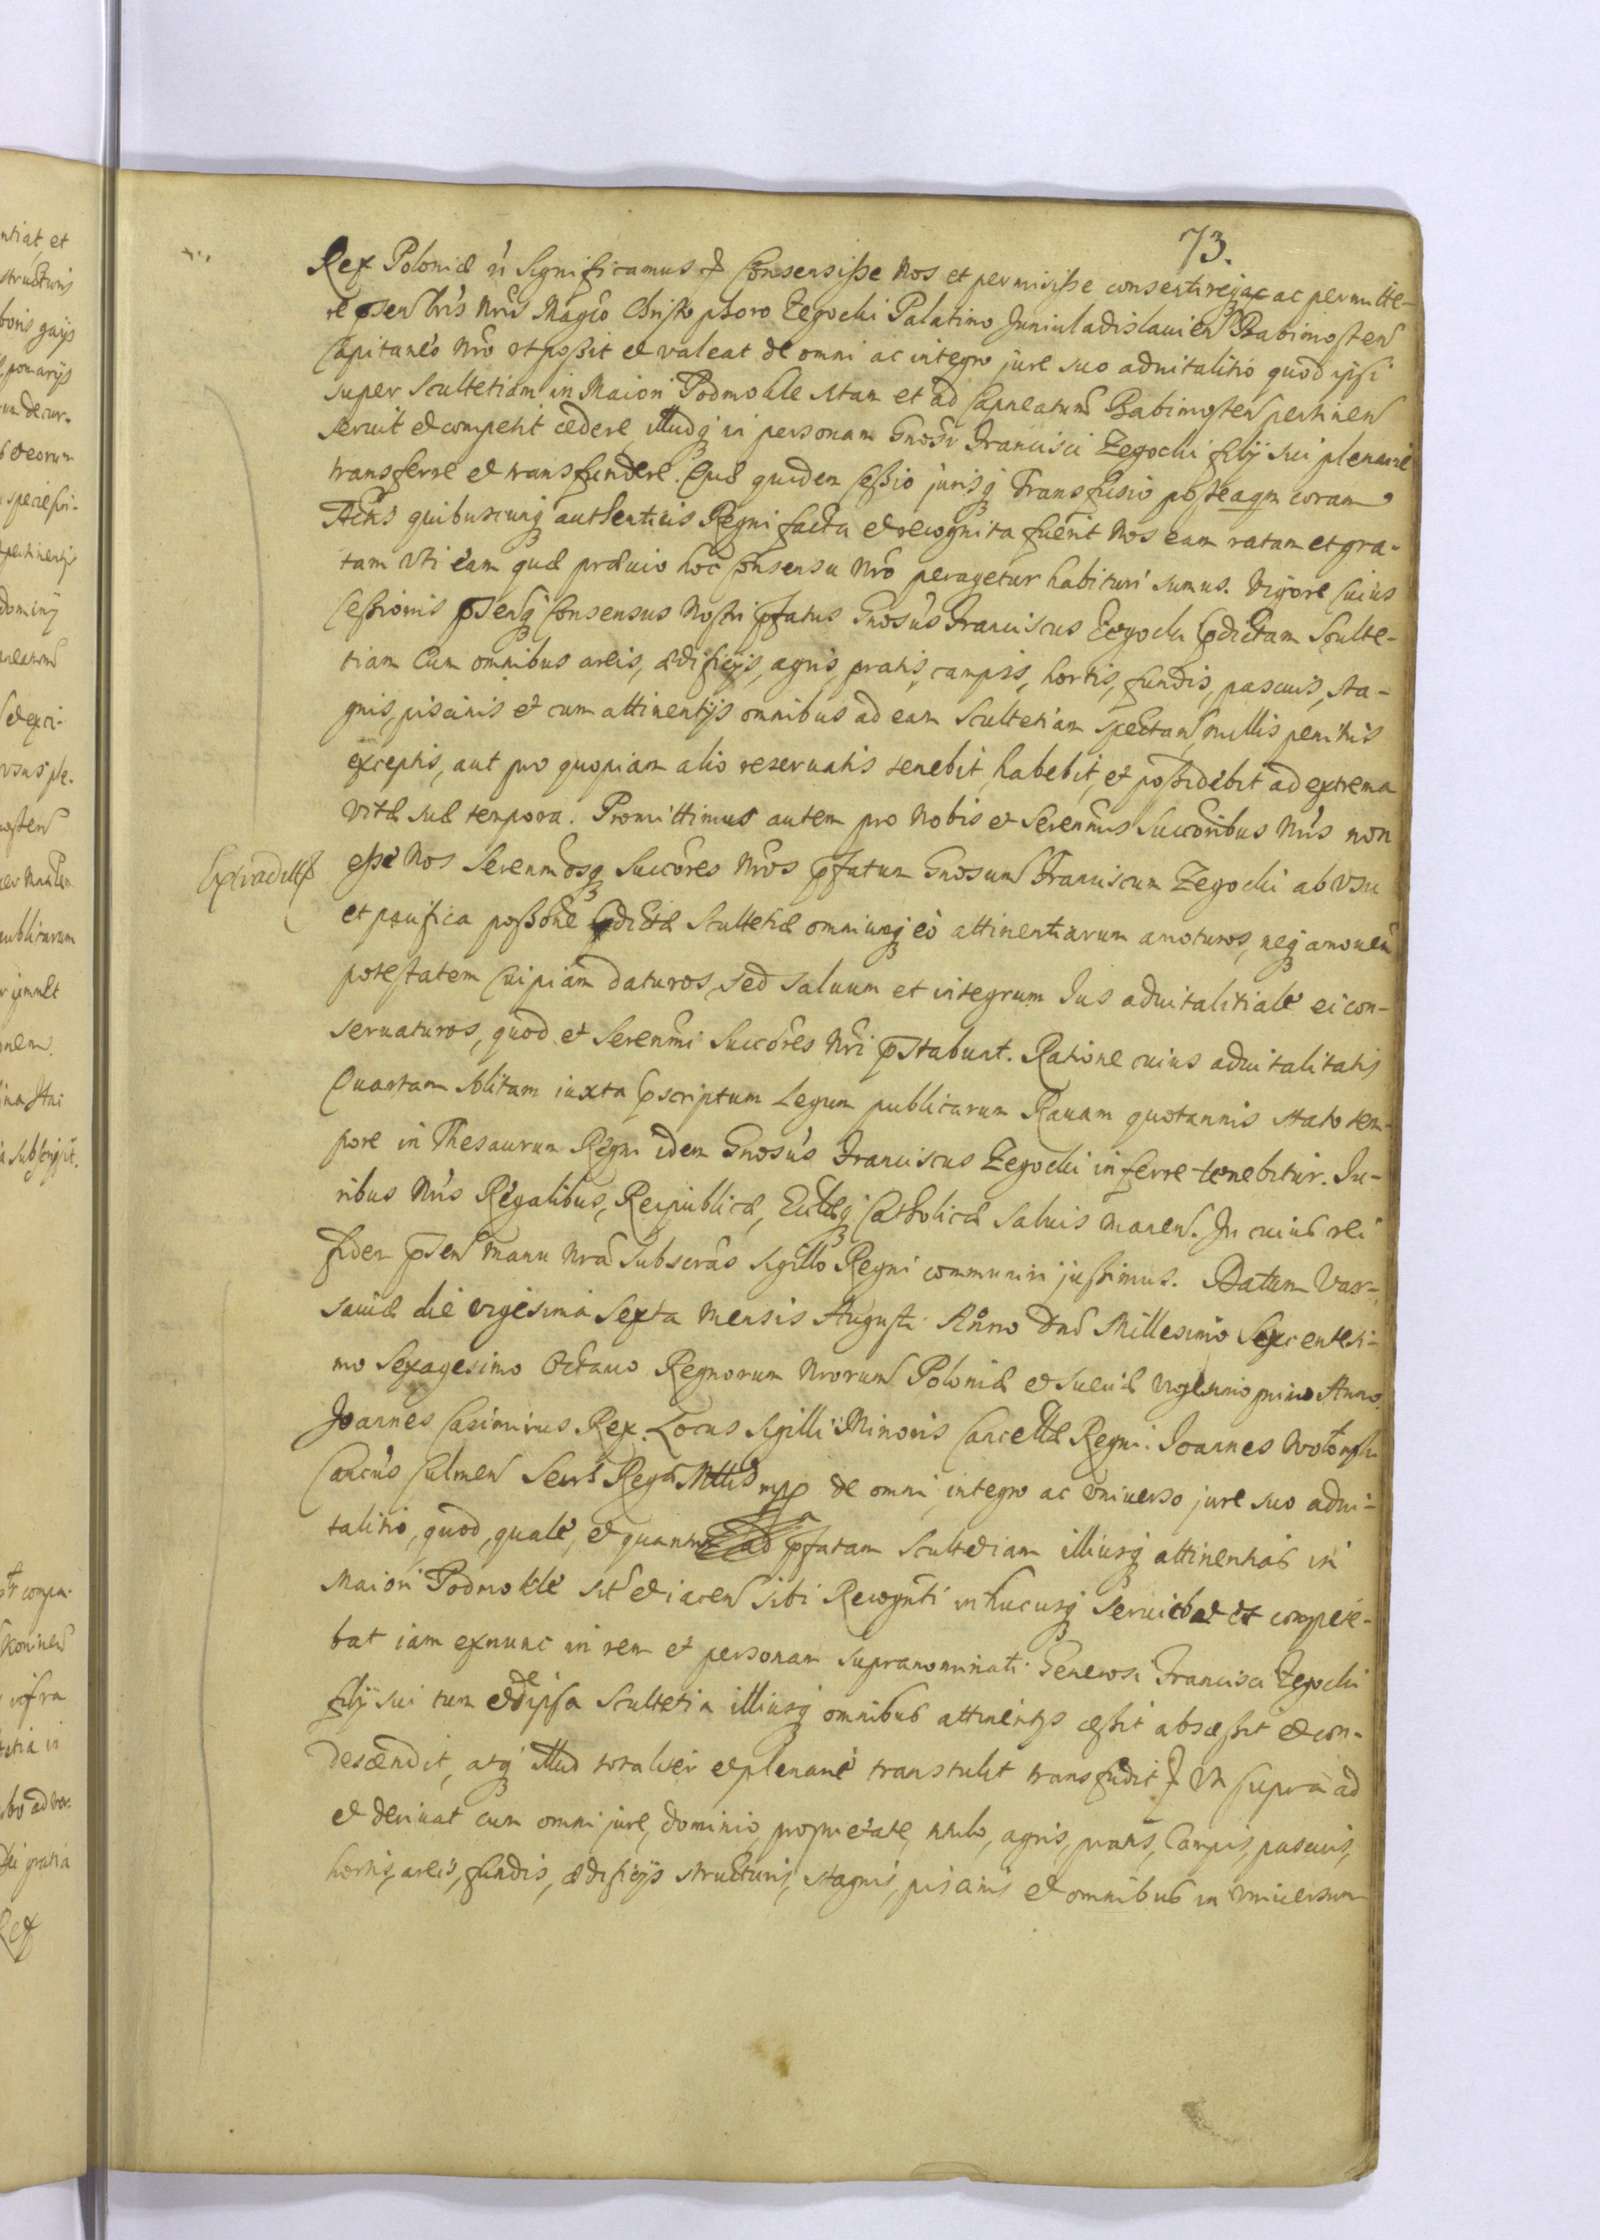 73.
Rex Poloniæ &c Significamus &c Consensisse Nos et permisisse consentireq ac permitte-
re psen Lris Nris Magco Christophoro Zegocki Palatino Juniuladislauien Babimosten
Capitaneo Nro ut possit et valeat de omni ac integro jure suo aduitalitio quod ipsi
super Scultetiam in Maiori Podmokle sitam et ad Capneatum Babimosten pertinen
seruit et competit cedere, illudq in personam Gnosi Francisci Zegocki filij sui plenarie
transferre et transfundere. Quæ quidem Cessio jurisq Transfusio posteaqm coram
Actis quibuscunq authenticis Regni facta et recognita fuerit Nos eam ratam et gra-
tam Uti eam quæ præuio hoc Consensu Nro peragetur habituri sumus. Vigore cuius
Cessionis psenq Consensus Nostri pfatus Gnosus Franciscus Zegocki pdictam Sculte-
tiam Cum omnibus areis, ædificijs, agris, pratis, campis, hortis, fundis, pascuis, sta-
gnis, piscinis et cum attinentijs omnibus ad eam Scultetiam spectan, nullis penitus
exceptis, aut pro quopiam alio reseruatis tenebit, habebit, et possidebit ad extrema
Vitæ suæ tempora. Promittimus autem pro Nobis et Serenmis Succoribus Nris non
Extradit
esse Nos Serenmosq Succores Nros pfatum Gnosum Franciscum Zegocki ab Vsu
et pacifica possone pdictæ Scultetiæ omniumq eo attinentiarum amoturos, neq amouen
potestatem Cuipiam daturos, sed saluum et integrum Jus aduitalitiale ei con-
seruaturos, quod et Serenmi Succores Nri pstabunt. Ratione cuius aduitalitatis
Quartam solitam iuxta pscriptum Legum publicarum Rauam quotannis stato tem-
pore in Thesaurum Regni idem Gnosus Franciscus Zegocki inferre tenebitur. Ju-
ribus Nris Regalibus, Reipublicæ, Ecclæq Catholicæ saluis manen. In cuius rei
fidem psen Manu Nra Subscras Sigillo Regni communiri jussimus. Datum Var-
sauiæ die vigesima Sexta Mensis Augusti Anno Dni Millesimo Sexcentesi-
mo Sexagesimo Octauo Regnorum Nrorum Poloniæ et Sueciæ Vigesimo primo Anno.
Joannes Casimirus Rex. Locus Sigilli Minoris Cancellæ Regni. Joannes
Cancus Culmen Secrs Regæ Mttis mpp de omni integro ac vniuerso jure suo adui-
talitio, quod, quale, et quantum ad pfatam Scultetiam illiusq attinentias in
Maiori Podmokle sit et iacen sibi Recognti in hucusq seruiebat et compete-
bat iam exnunc in rem et personam supranominati Generosi Francisci Zegocki
filij sui tum et de ipsa Scultetia illiusq omnibus attinentijs cessit abscessit et con-
descendit, atq illud totaliter et plenarie transtulit transfudit &c Ut supra ad
et deriuat cum omni jure, dominio, proprietate, titulo, agris, pratis, Campis, pascuis,
hortis, areis, fundis, ædificijs structuris, stagnis, piscinis et omnibus in vniuersum